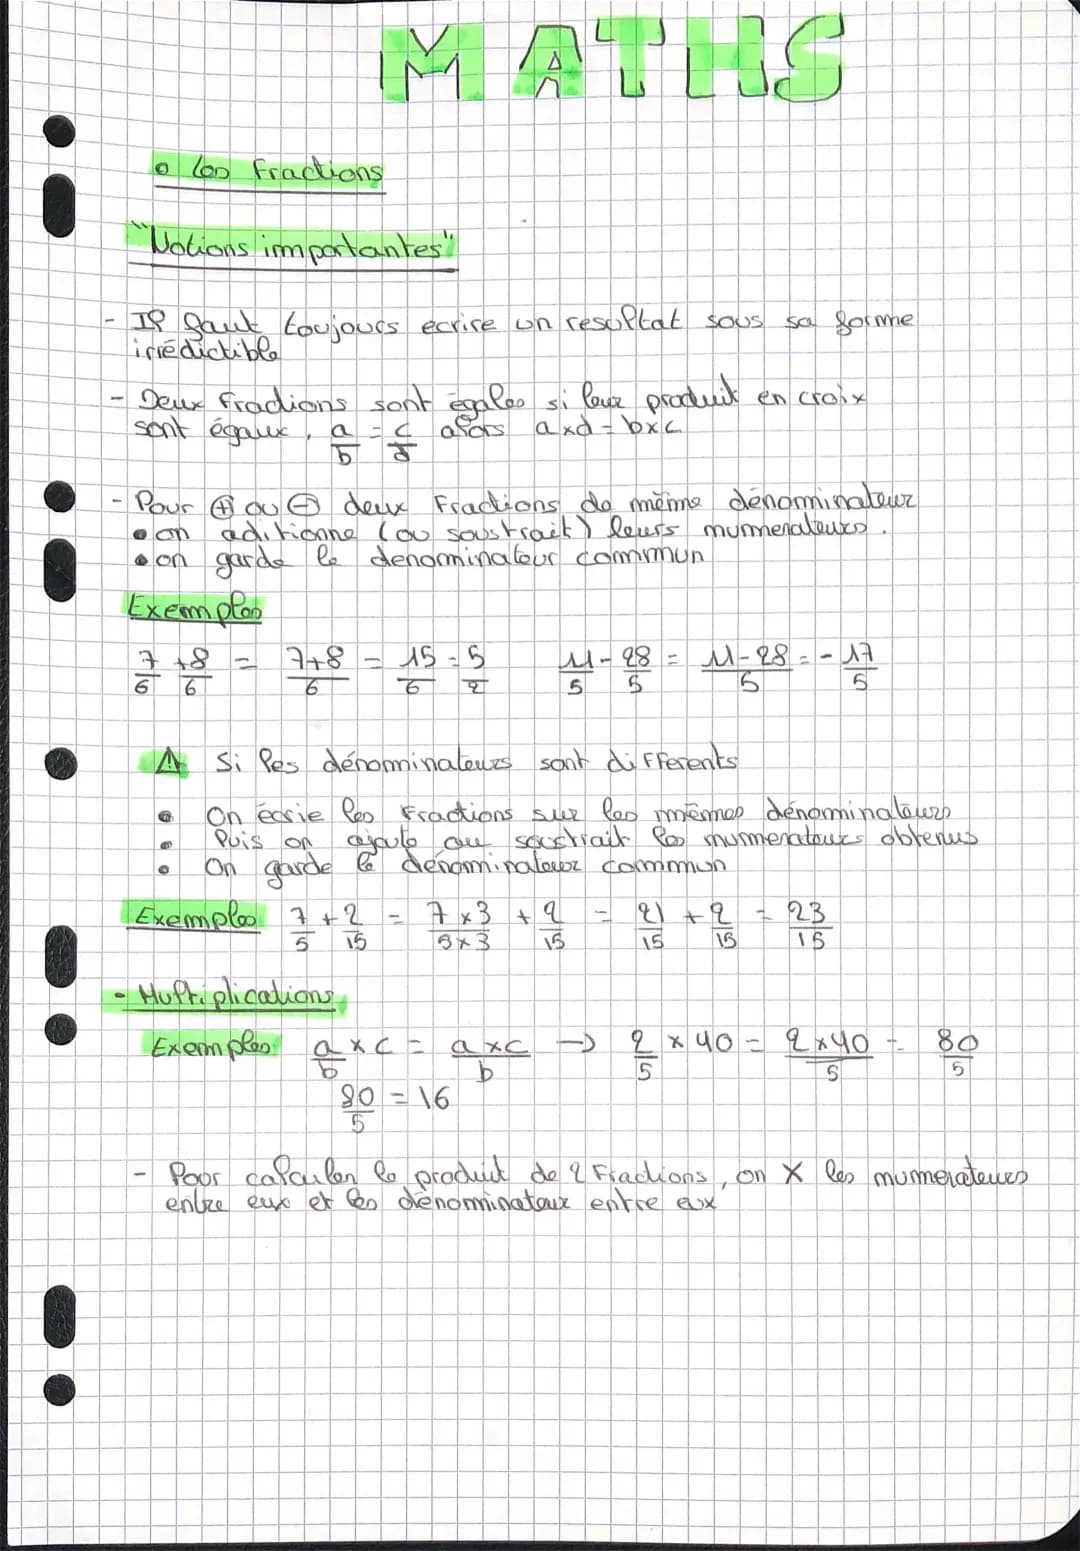 MATHS
les Fractions
"Notions importantes"
- Il faut toujours ecrire un resultat sous sa forme
irrédictible
- Deux fractions sont égales si leur produit en croix
sont égaux, a/b = c/d alors axd = bxc
- Pour ⊕ ou ⊖ deux Fractions de même dénominateur
• on aditionne (ou soustrait) leurs numerateurs.
• on garde le denominateur commun
Exemples
7/6 + 8/6 = 7+8/6 = 15/6 = 5/2 11/5 - 28/5 = 11-28/5 = - 17/5
⚠ Si les dénominateurs sont differents
• On écrie les Fractions sur les mêmes dénominateurs
• Puis on ajoute ou soustrait les numerateurs obtenus
• On garde le dénominateur commun
Exemples 7/5 + 2/15 = 7x3/5x3 + 2/15 = 21/15 + 2/15 = 23/15
- Multiplications
Exemples a/b x c = axc/b → 2/5 x 40 = 2x40/5 = 80/5
80/5 = 16
- Pour calculer le produit de 2 Fractions, on X les numerateurs
entre eux et les dénominateur entre eux